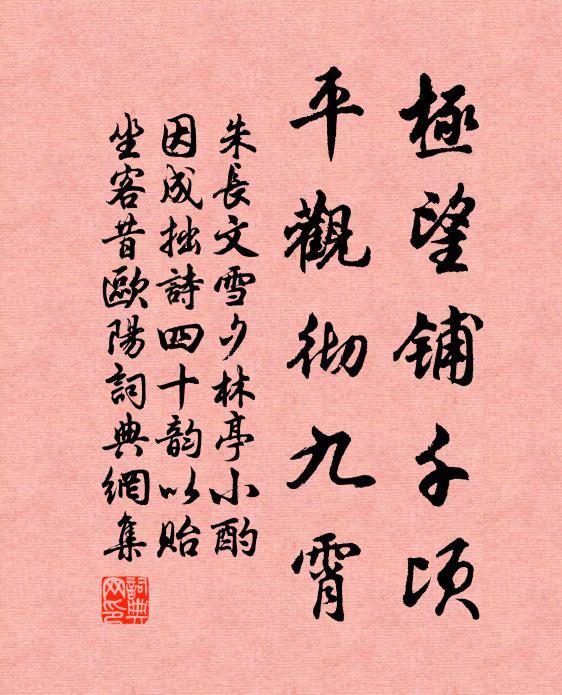 極望铺千頃
平觀彻九霄
朱長文雪夕林亭小酌
因成拙詩四十韵以贻
坐客昔歐陽詞典網集
詞典网印